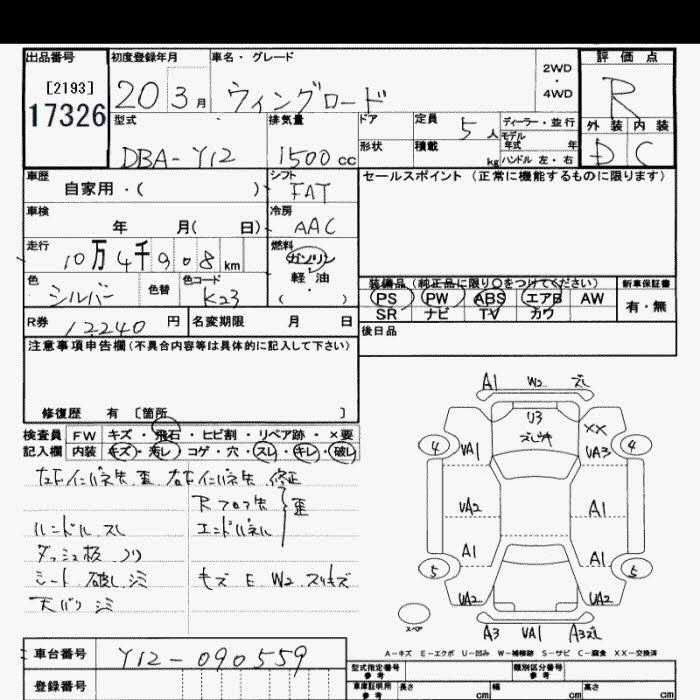 出品番号 初度登録年月 車名・グレード 評価点
[2193]
17326
20 3月 ウィングロード 2WD・4WD R
型式 排気量 ドア 定員 5人 ディーラー・並行 外装 内装
モデル年式 年
DBA-Y12 1500cc 形状 積載 kg ハンドル 左・右 D C
車歴 シフト セールスポイント(正常に機能するものに限ります)
自家用・( ) FAT
車検 冷房
年 月( 日) AAC
走行 燃料
10万4千908km ガソリン
軽油
( )
色 色替 色コード 装備品(純正品に限り○をつけてください) 新車保証書
シルバー K23 PS PW ABS エアB AW 有・無
SR ナビ TV カワ
R券 12240円 名変期限 月 日 後日品
注意事項申告欄(不具合内容等は具体的に記入して下さい)
修復歴 有〔箇所 〕
検査員 FW キズ・飛石・ヒビ割・リペア跡・×要
記入欄 内装 キズ・汚レ・コゲ・穴・スレ・キレ・破レ
左下インパネ先 歪 右下インパネ先 修正
Rフロア先 歪
ハンドル スレ エンドパネル
ダッシュ板 ソリ
シート 破レ シミ キズ E W2 スリキズ
天バリ シミ
A1 W2 ズレ
U3 XX
4 VA1 VA3 4
VA2 A1
A1 A1
5 UA2 UA2 5
スペア
A3 VA1 A3ズレ
A-キズ E-エクボ U-凹み W-補修跡 S-サビ C-腐食 XX-交換済
車台番号 Y12-090559 型式指定番号 参考 類別区分番号 参考
登録番号 車庫証明用 参考 長さ cm 幅 cm 高さ cm